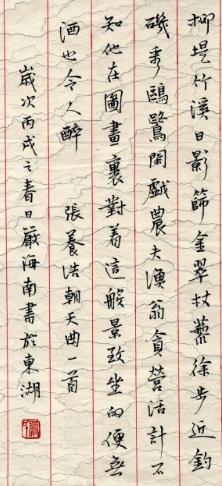 柳堤竹溪日影篩金翠杖藜徐步近釣
磯看鷗鷺閑戲農夫漁翁貪營活計不
知他在圖畫裏對着這般景致坐的便無
酒也令人醉 張養浩朝天曲一首
歲次丙戌之春日嚴海南書於東湖